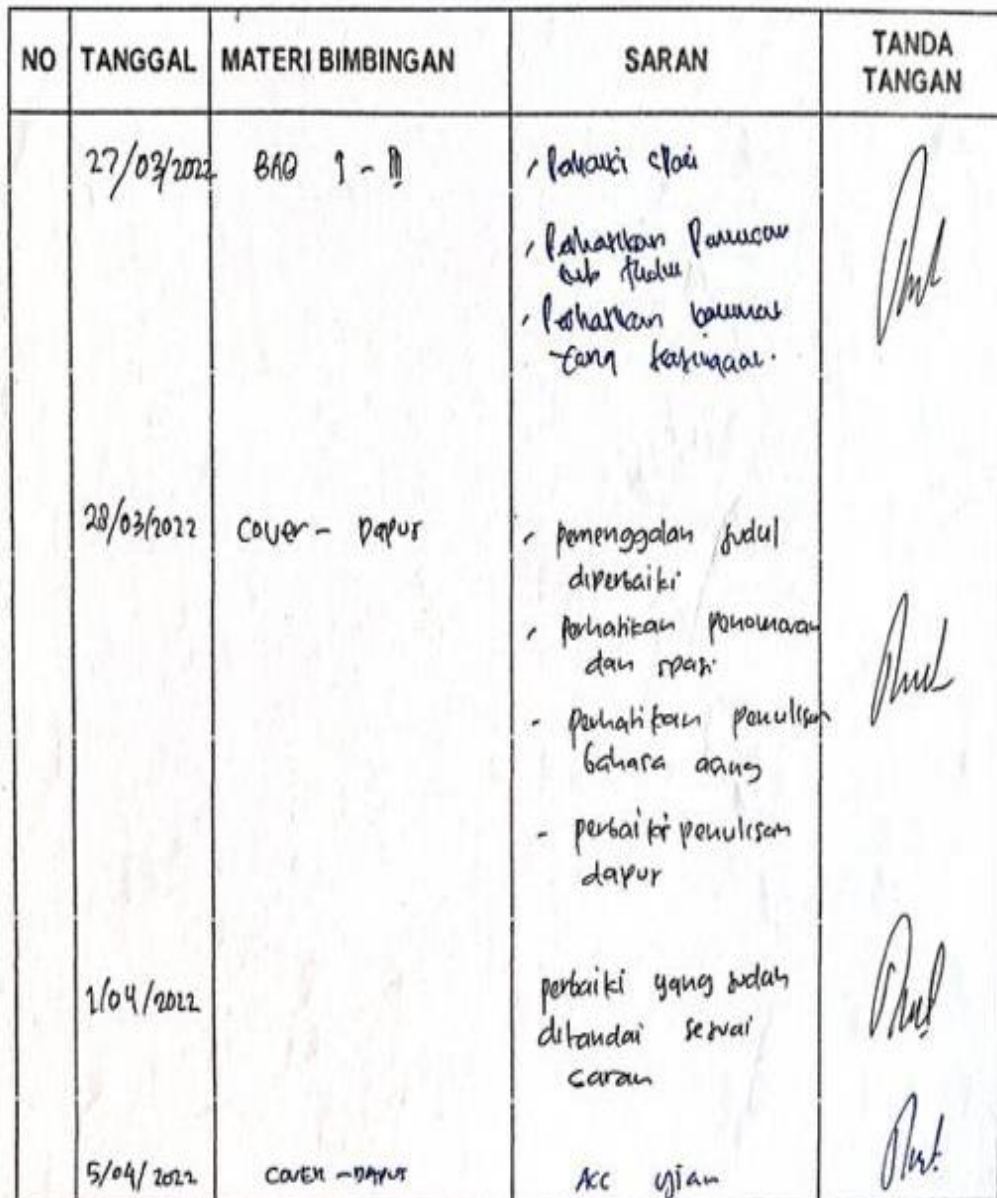 NO TANGGAL MATERI BIMBINGAN SARAN TANDA TANGAN
27/03/2022 BAB I - III
Perhatikan
sub judul
Perhatikan
yang
28/03/2022 Cover - Dapus
- pemenggalan judul
diperbaiki
- Perhatikan penomoran
dan spasi
- perhatikan penulisan
bahasa asing
- perbaiki penulisan
dapus
1/04/2022 perbaiki yang sudah
ditandai sesuai
saran
5/04/2022 COVER - DAPUS ACC ujian